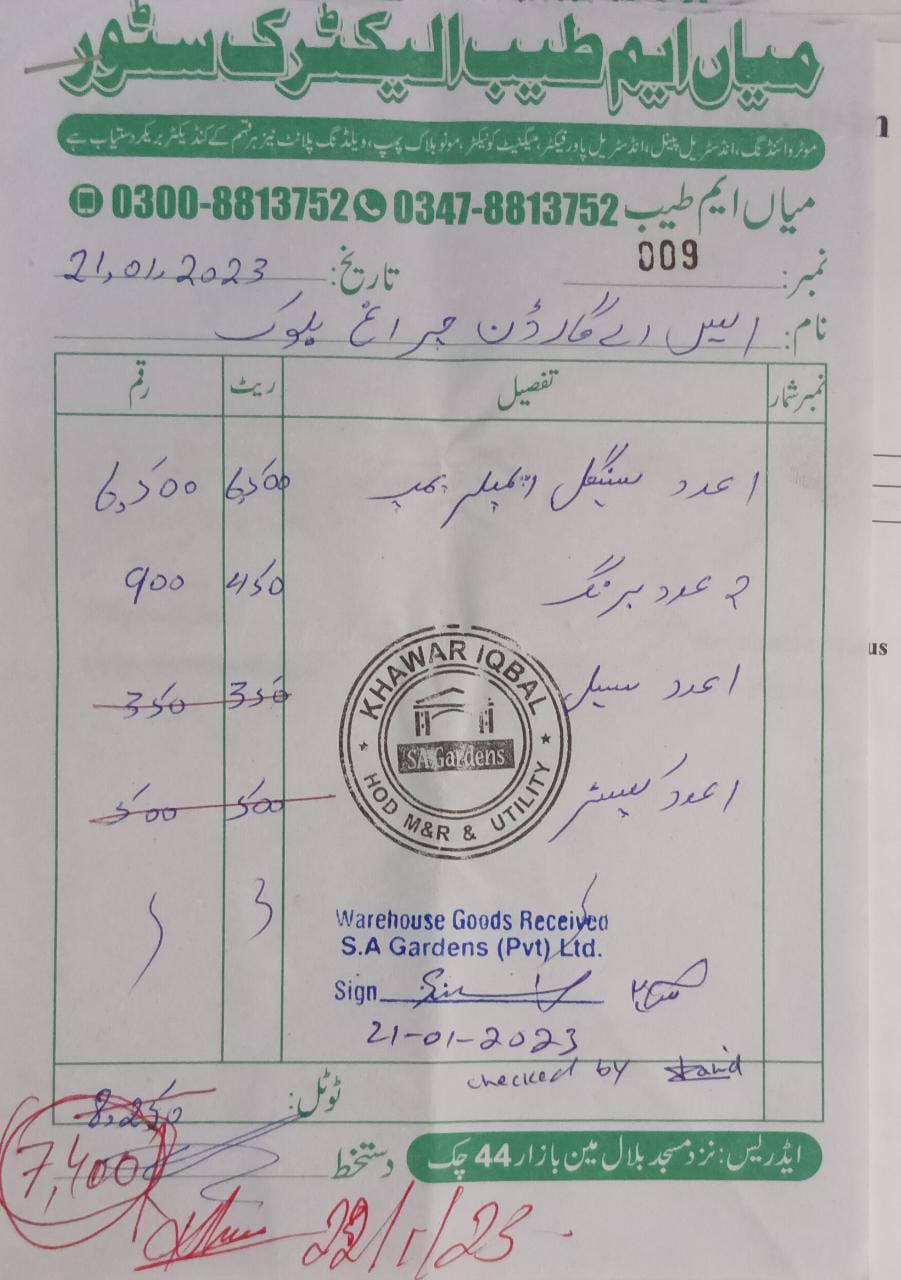 میاں ایم طیب الیکٹرک سٹور
موٹر وائنڈنگ، انڈسٹریل پینل، انڈسٹریل پاور فیکٹر، میگنیٹ کونیکٹر، مونو بلاک پمپ، ویلڈنگ پلانٹ نیز ہر قسم کے کنڈیکٹر بریکر دستیاب ہے
میاں ایم طیب 0347-8813752 0300-8813752
نمبر: 009 تاریخ: 21,01,2023
نام: ایس اے گارڈن چراغ بلوک
نمبر شمار تفصیل ریٹ رقم
1 عدد سنگل امپلر پمپ 6,500 6,500
2 عدد برنگ 450 900
1 عدد سیل 350 350
1 عدد کپیسٹر 500 500
KHAWAR IQBAL
SA Gardens
HOD M&R & UTILITY
Warehouse Goods Received
S.A Gardens (Pvt) Ltd.
Sign
21-01-2023
checked by
ٹوٹل: 8,250
7,400
دستخط
ایڈریس: نزد مسجد بلال مین بازار 44 چک
22/1/23
n
us